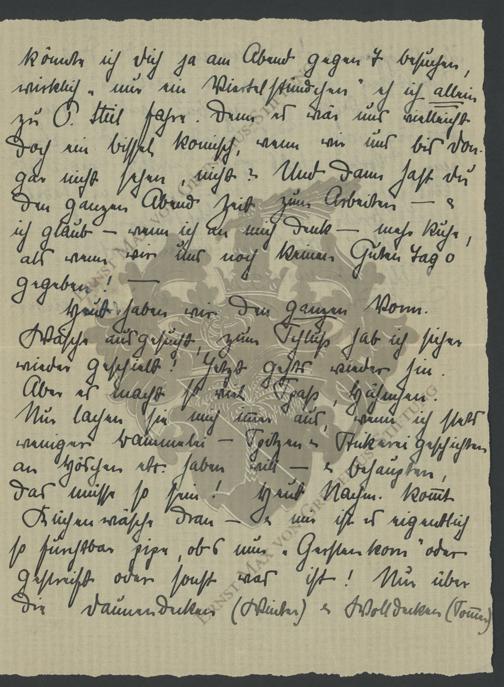 könnte ich dich ja am Abend gegen 7 besuchen,
wirklich „nur ein Viertelstündchen" eh ich allein
zu O. Stül fahre. Denn es wär uns vielleicht
doch ein bissel komisch, wenn wir uns bis don.
gar nicht sehen, nicht? Und dann hast du
den ganzen Abend Zeit zum Arbeiten — &
ich glaub — wenn ich an mich denk — mehr Ruhe,
als wenn wir uns noch keinen Guten Tag
gegeben! —
Heut haben wir den ganzen Vorm.
Wäsche ausgesucht, zum Schluß hab ich sicher
wieder geschielt! Jetzt gehts wieder hin.
Aber es macht so viel Spaß,
Nur lachen sie mich immer aus, wenn ich stets
weniger Bammelei — Spitzen & Stickereigeschichten
an Höschen etc. haben will — & behaupten,
das müsse so sein! Heut Nachm. kommt
Küchenwäsche dran — da mir ist es eigentlich
so furchtbar pipe, ob's nun „Gerstenkorn" oder
gestreift oder sonst was ist! Nur über
die Daunendecken (Winter) & Wolldecken (Sommer)
ERNST MAX VON GRUNELIUS-STIFTUNG
ERNST MAX VON GRUNELIUS-STIFTUNG